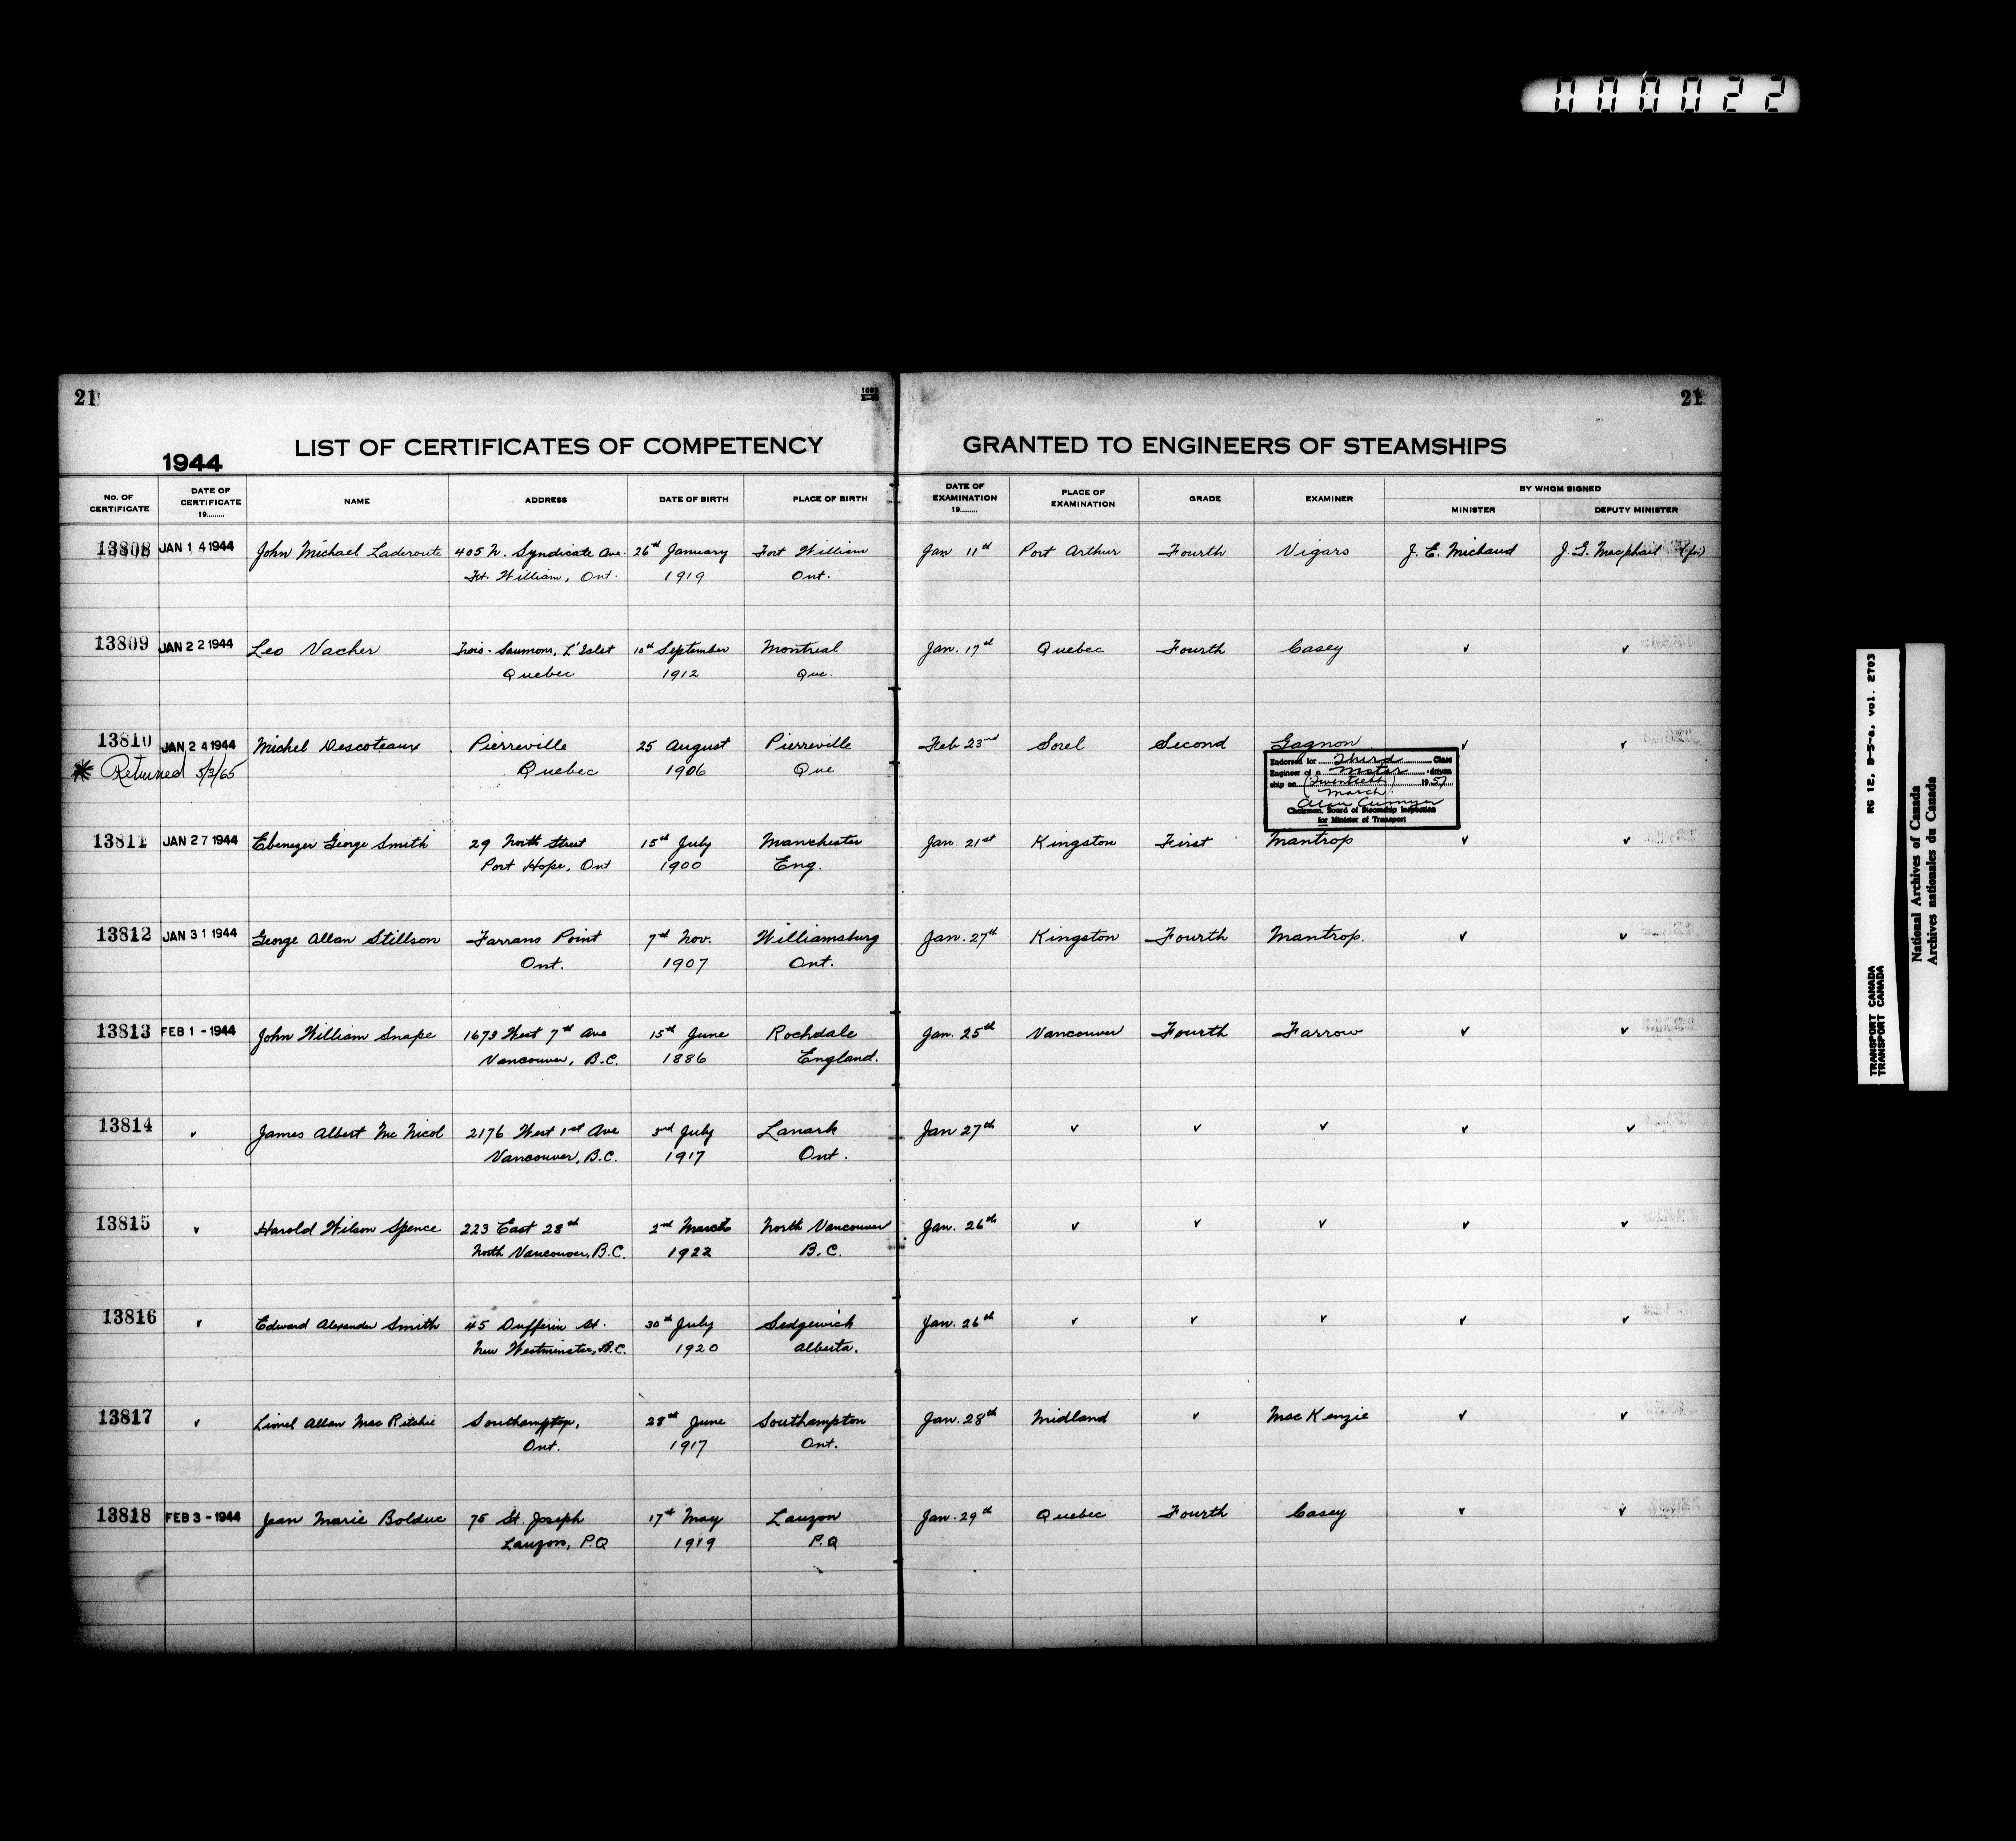 000022
21
1062
21
LIST OF CERTIFICATES OF COMPETENCY GRANTED TO ENGINEERS OF STEAMSHIPS
1944
No. OF CERTIFICATE DATE OF CERTIFICATE 19........ NAME ADDRESS DATE OF BIRTH PLACE OF BIRTH DATE OF EXAMINATION 19........ PLACE OF EXAMINATION GRADE EXAMINER BY WHOM SIGNED
MINISTER DEPUTY MINISTER
13808 JAN 14 1944 John Michael Laderoute 405 N. Syndicate Ave. 26th January Fort William Jan 11th Port Arthur Fourth Vigars J. E. Michaud J. G. Macphail (for)
Ft. William, Ont. 1919 Ont.
13809 JAN 22 1944 Leo Vacher Trois-Saumons, L'Islet 10th September Montreal Jan. 17th Quebec Fourth Casey ✓ ✓
Quebec 1912 Que.
13810 JAN 24 1944 Michel Descoteaux Pierreville 25 August Pierreville Feb 23rd Sorel Second Gagnon ✓ ✓
* Returned 5/3/65 Quebec 1906 Que
Endorsed for Third Class
Engineer of a Motor -driven
ship on (Twentieth) 1957
March
Alan Cumyn
Chairman, Board of Steamship Inspection
for Minister of Transport
13811 JAN 27 1944 Ebenezer George Smith 29 North Street 15th July Manchester Jan. 21st Kingston First Mantrop ✓ ✓
Port Hope, Ont 1900 Eng.
13812 JAN 31 1944 George Allan Stillson Farrans Point 7th Nov. Williamsburg Jan. 27th Kingston Fourth Mantrop. ✓ ✓
Ont. 1907 Ont.
13813 FEB 1 - 1944 John William Snape 1673 West 7th Ave 15th June Rochdale Jan. 25th Vancouver Fourth Farrow ✓ ✓
Vancouver, B.C. 1886 England.
13814 ✓ James Albert Mc Nicol 2176 West 1st Ave 3rd July Lanark Jan 27th ✓ ✓ ✓ ✓ ✓
Vancouver, B.C. 1917 Ont.
13815 ✓ Harold Wilson Spence 223 East 28th 2nd March North Vancouver Jan. 26th ✓ ✓ ✓ ✓ ✓
North Vancouver, B.C. 1922 B.C.
13816 ✓ Edward Alexander Smith 45 Dufferin St. 30th July Sedgewick Jan. 26th ✓ ✓ ✓ ✓ ✓
New Westminster, B.C. 1920 Alberta.
13817 ✓ Lionel Allan Mac Ritchie Southampton, 28th June Southampton Jan. 28th Midland ✓ Mac Kenzie ✓ ✓
Ont. 1917 Ont.
13818 FEB 3 - 1944 Jean Marie Bolduc 75 St. Joseph 17th May Lauzon Jan. 29th Quebec Fourth Casey ✓ ✓
Lauzon, P.Q 1919 P.Q
RG 12, B-5-a, vol. 2703
TRANSPORT CANADA
TRANSPORT CANADA
National Archives of Canada
Archives nationales du Canada